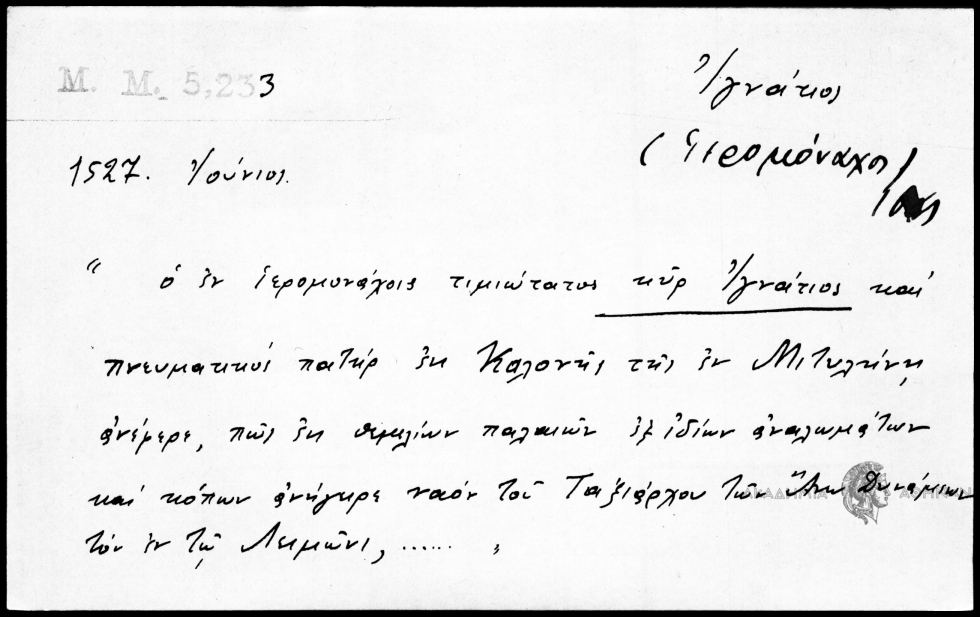 M. M. 5,233
Ἰγνάτιος
(Ἱερομόναχος)
1527. Ἰούνιος.
“ ὁ ἐν ἱερομονάχοις τιμιώτατος κῦρ Ἰγνάτιος καὶ
πνευματικὸς πατὴρ ἐκ Καλονῆς τῆς ἐν Μιτυλήνῃ
ἀνέφερε, πῶς ἐκ θεμελίων παλαιῶν ἐξ ἰδίων ἀναλωμάτων
καὶ κόπων ἀνήγειρε ναὸν τοῦ Ταξιάρχου τῶν ἄνω Δυνάμεων
τὸν ἐν τῷ Λειμῶνι, ...... „
ΑΚΑΔΗΜΙΑ ΑΘΗΝΩΝ